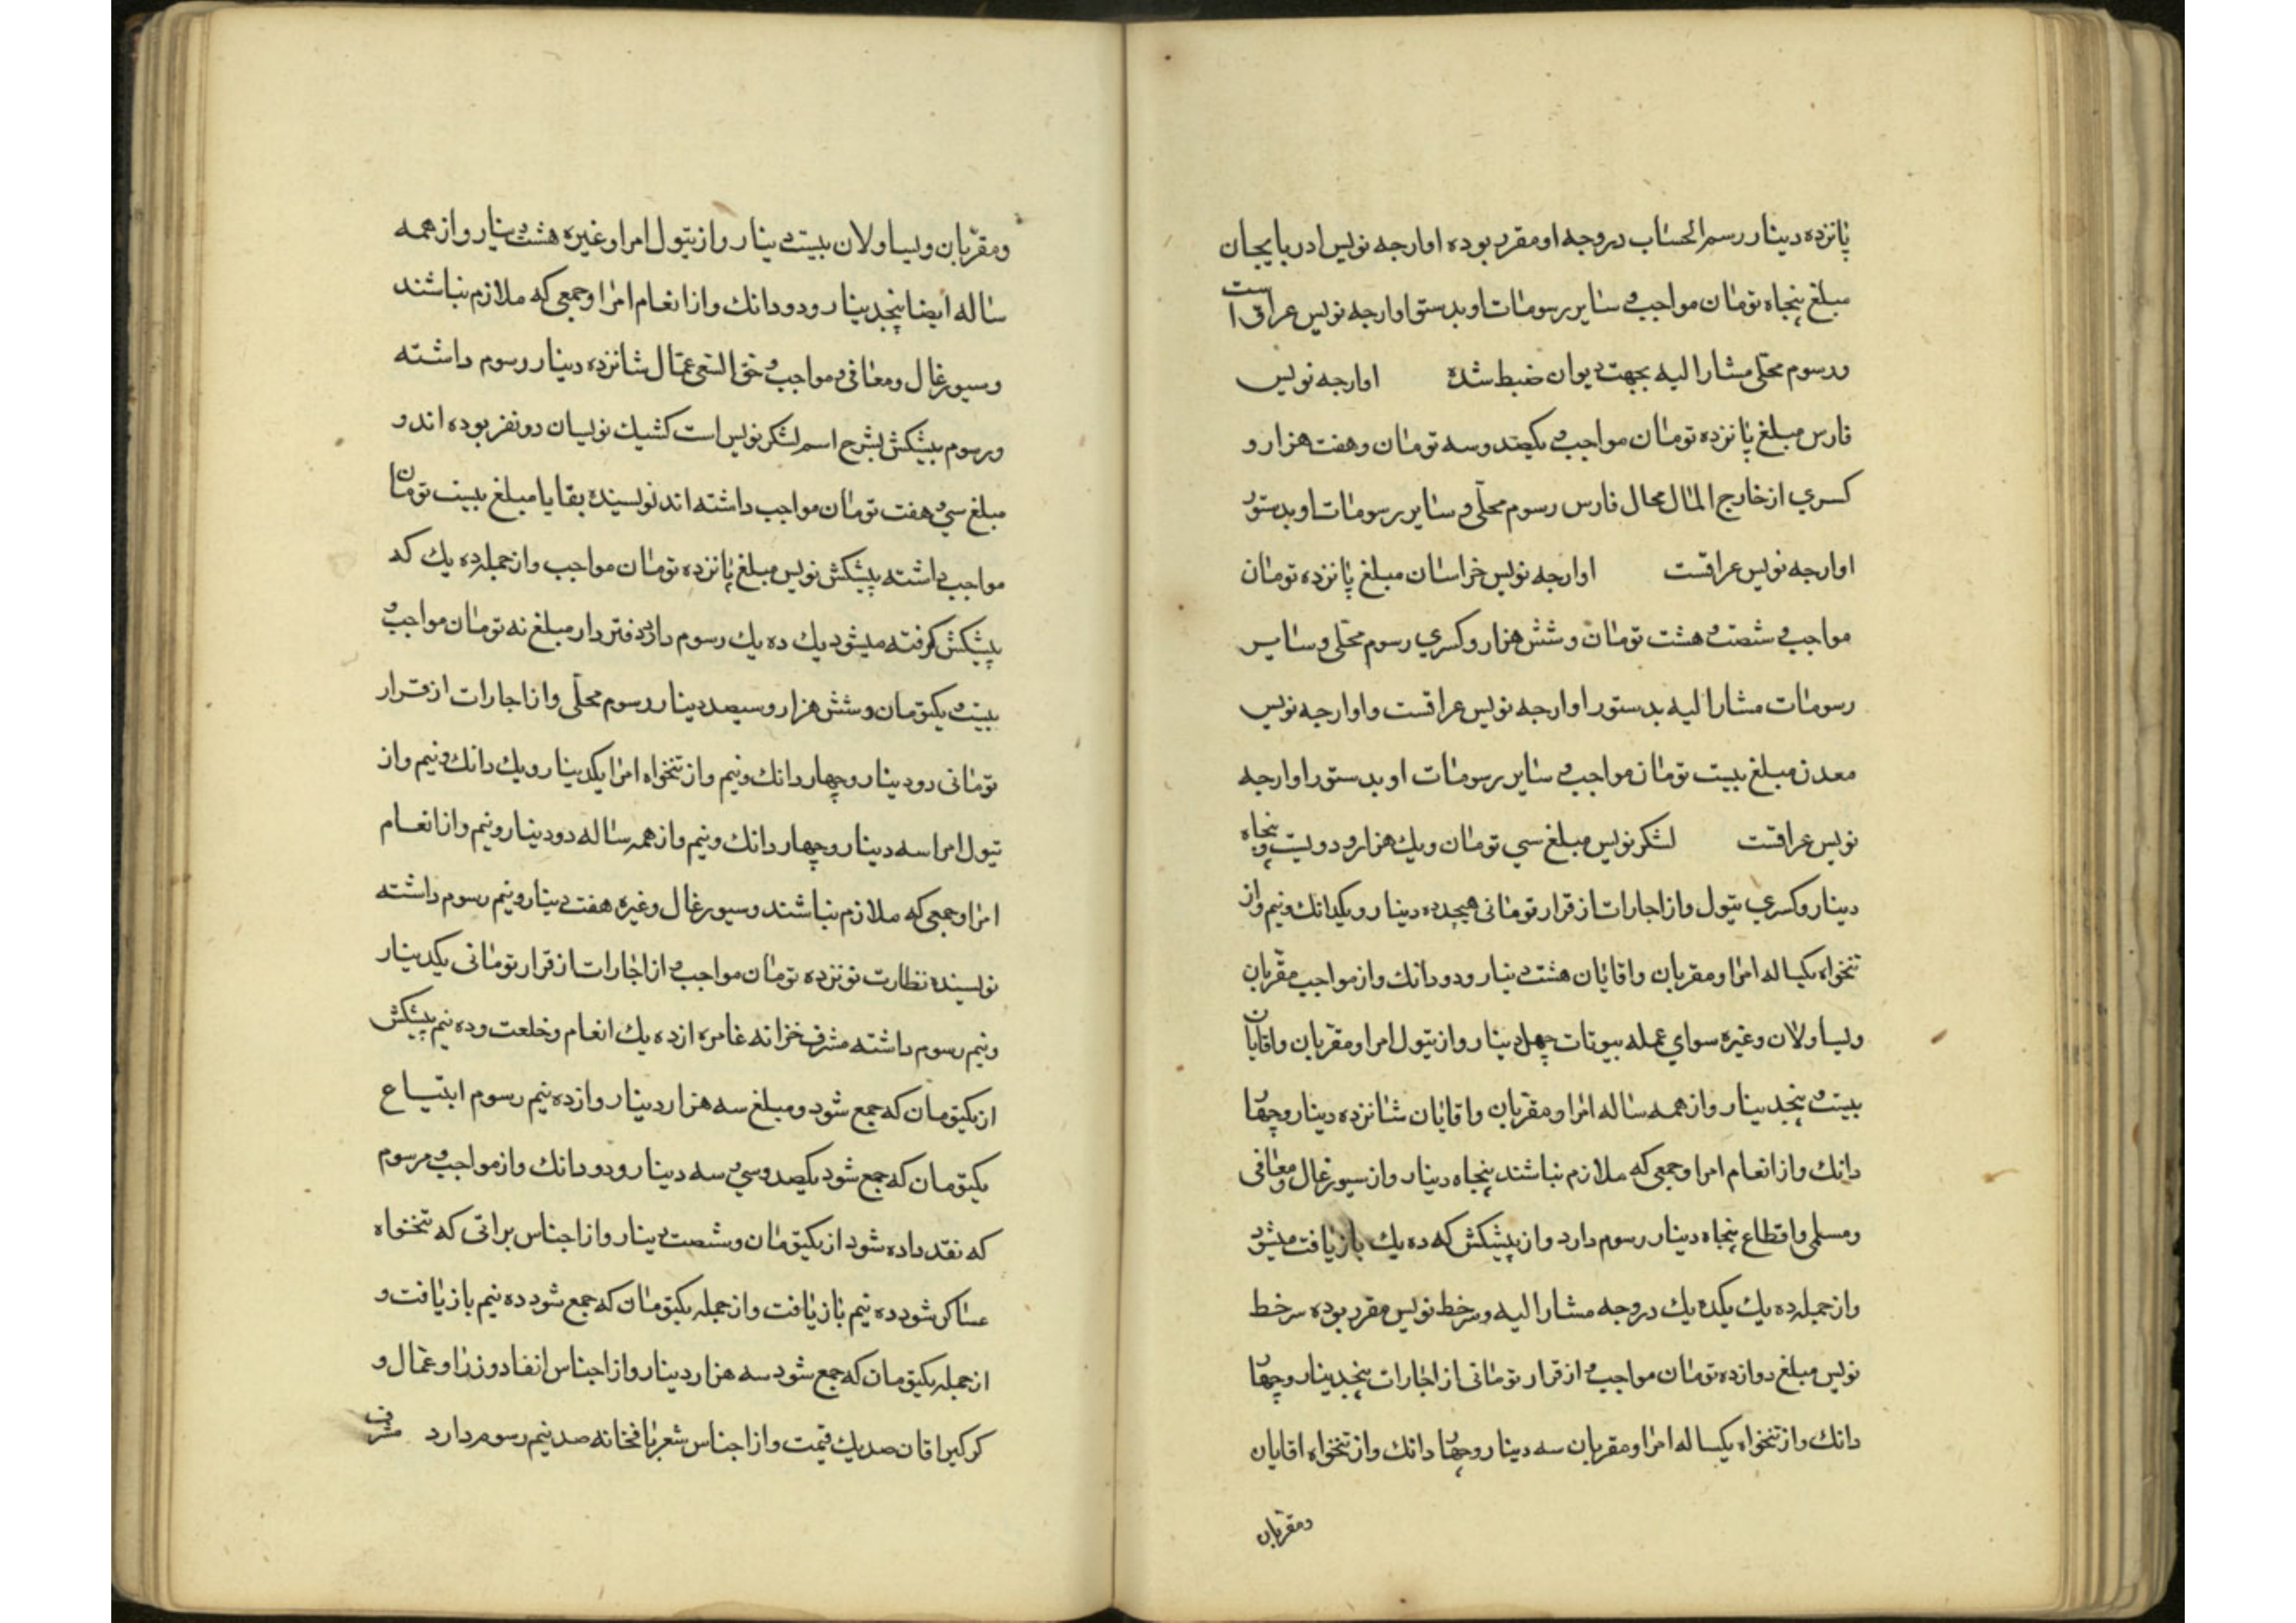 پانزده دینار رسم الحساب در وجه او مقرر بوده اوارجه نویس ادربایجان
مبلغ پنجاه تومان مواجب و سایر رسومات او بدستو اوارجه نویس عراق است
و رسوم محلی مشار الیه بجهت دیوان ضبط شده اوارجه نویس
فارس مبلغ پانزده تومان مواجب و یکصد و سه تومان و هفت هزار و
کسری از خارج المال محال فارس رسوم محلی و سایر رسومات او بدستور
اوارجه نویس عراقست اوارجه نویس خراسان مبلغ پانزده تومان
مواجب و شصت و هشت تومان و شش هزار و کسری رسوم محلی و سایر
رسومات مشار الیه بدستور اوارجه نویس عراقست و اوارجه نویس
معدن مبلغ بیست تومان مواجب و سایر رسومات او بدستور اوارجه
نویس عراقست لشکر نویس مبلغ سی تومان و یک هزار و دویست و پنجاه
دینار و کسری تیول و از اجارات از قرار تومانی هیجده دینار و یکدانک و نیم و از
تنخواه یکساله امرا و مقربان و اقایان هشت دینار و دودانک و از مواجب مقربان
و یساولان و غیره سوای عمله بیوتات چهل دینار و از تیول امرا و مقربان و اقایان
بیست و پنجدینار و از همه ساله امرا و مقربان و اقایان شانزده دینار و چهار
دانک و از انعام امرا و جمعی که ملازم نباشند پنجاه دینار و از سیورغال و معافی
و مسلمی و اقطاع پنجاه دینار رسوم دارد و از پیشکش که ده یک باز یافت میشود
و از جمله ده یک یکده یک در وجه مشار الیه و سرخط نویس مقرر بوده سرخط
نویس مبلغ دوازده تومان مواجب و از قرار تومانی از اجارات پنجدینار و چهار
دانک و از تنخواه یکساله امرا و مقربان سه دینار و چهار دانک و از تنخواه اقایان
و مقربان
و مقربان و یساولان بیست دینار و از تیول امرا و غیره هشت دینار و از همه
ساله ایضا پنجدینار و دودانک و از انعام امرا و جمعی که ملازم نباشند
و سیورغال و معافی و مواجب و حق السعی عمال شانزده دینار رسوم داشته
و رسوم پیشکش بشرح اسم لشکر نویس است کشیک نویسان دو نفر بوده اند و
مبلغ سی و هفت تومان مواجب داشته اند نویسنده بقایا مبلغ بیست تومان
مواجب داشته پیشکش نویس مبلغ پانزده تومان مواجب و از جمله ده یک که
پیشکش گرفته میشود یک ده یک رسوم دارد دفتر دار مبلغ نه تومان مواجب و
بیست و یکتومان و شش هزار و سیصد دینار رسوم محلی و از اجارات از قرار
تومانی دو دینار و چهار دانک و نیم و از تنخواه امرا یکدینار و یک دانک و نیم و از
تیول امرا سه دینار و چهار دانک و نیم و از همه ساله دو دینار و نیم و از انعام
امرا و جمعی که ملازم نباشند و سیورغال و غیره هفت دینار و نیم رسوم داشته
نویسنده نظارت نونزده تومان مواجب و از اجارات از قرار تومانی یکدینار
و نیم رسوم داشته مشرف خزانه عامره از ده یک انعام و خلعت و ده نیم پیشکش
از یکتومان که جمع شود و مبلغ سه هزار دینار و از ده نیم رسوم ابتیاع
یکتومان که جمع شود یکصد و سی و سه دینار و دودانک و از مواجب و مرسوم
که نقد داده شود از یکتومان و شصت دینار و از اجناس براتی که تنخواه
عساکر شود ده نیم باز یافت و از جمله یکتومان که جمع شود ده نیم باز یافت و
از جمله یکتومان که جمع شود سه هزار دینار و از اجناس انفاد وزرا و عمال و
کرکیراقان صد یک قیمت و از اجناس شعربافخانه صد نیم رسوم دارد مشرف